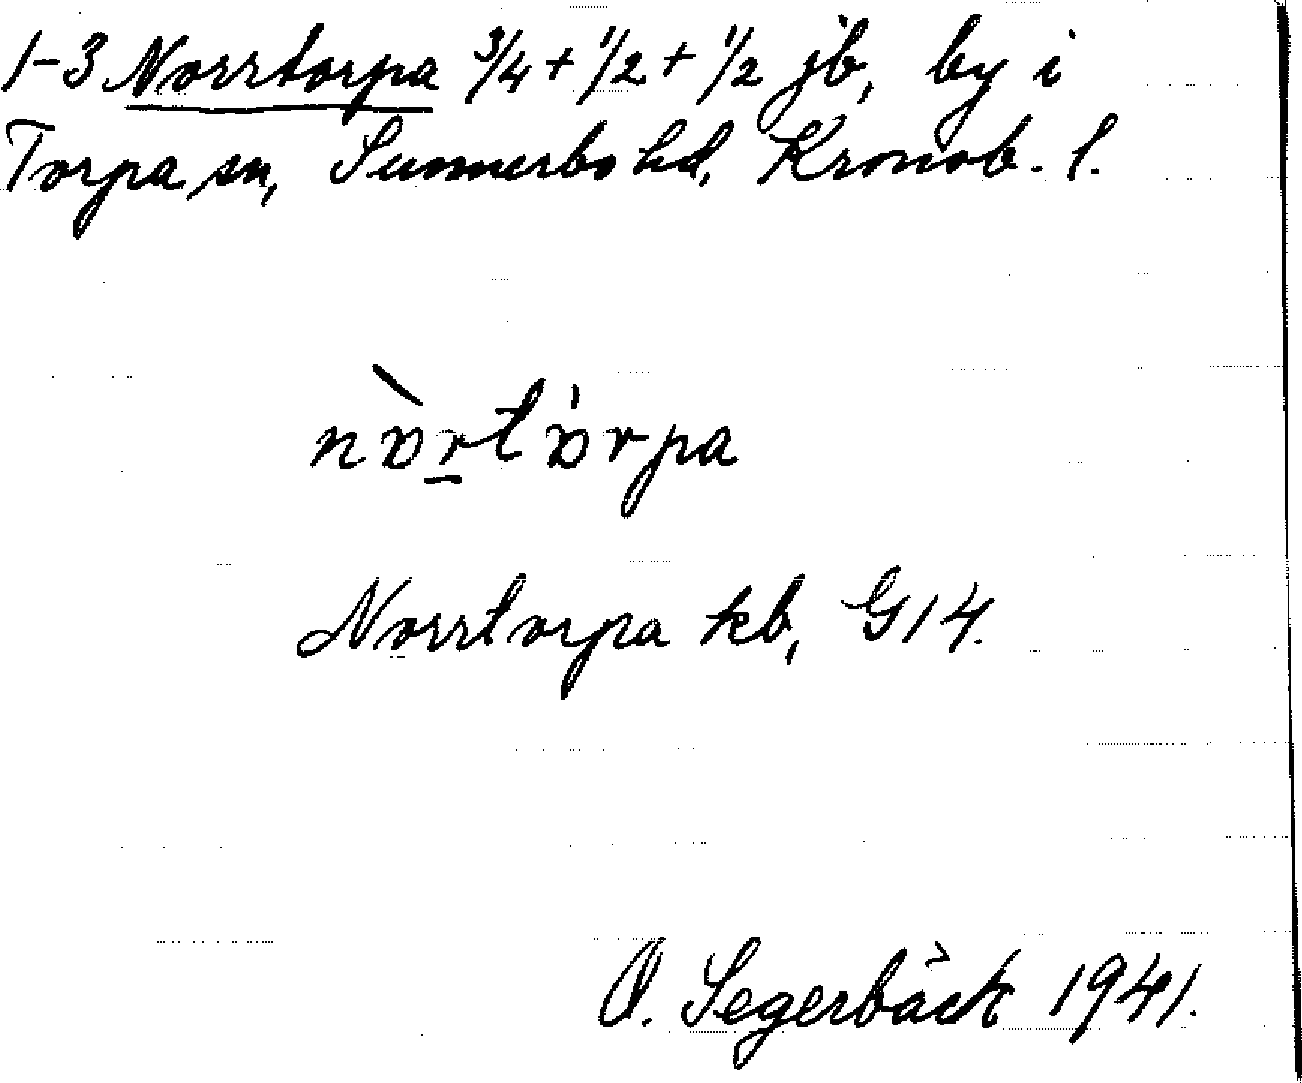 1-3 Norrtorpa 3/4 + 1/2 + 1/2 jb, by i
Torpa sn, Sunnerbo hd, Kronob. l.
nɒ̀rtɒ̍rpa
Norrtorpa kb, G14.
O. Segerbäck 1941.